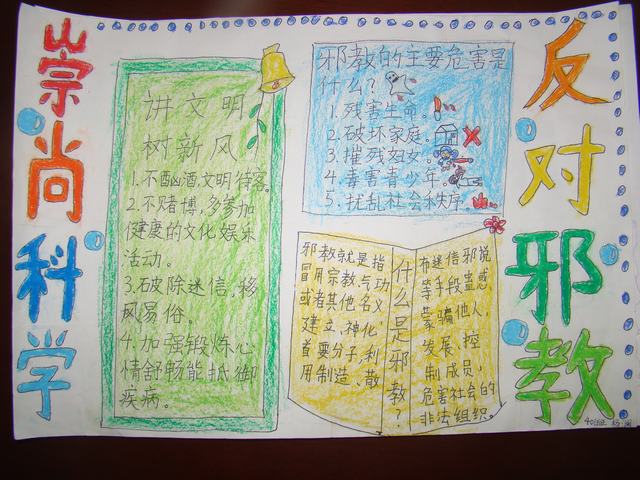 崇尚科学
讲文明
树新风
1.不酗酒,文明待客。
2.不赌博,多参加
健康的文化娱乐
活动。
3.破除迷信,移
风易俗.
4.加强锻炼心
情舒畅能抵御
疾病。
邪教的主要危害是
什么?
1.残害生命。
2.破坏家庭。
3.摧残妇女。
4.毒害青少年。
5.扰乱社会秩序。
邪教就是指
冒用宗教、气功
或者其他名义
建立、神化,
首要分子,利
用制造、散
什么是邪教?
布迷信邪说
等手段蛊惑
蒙骗他人,
发展、控
制成员,
危害社会的
非法组织。
反对邪教